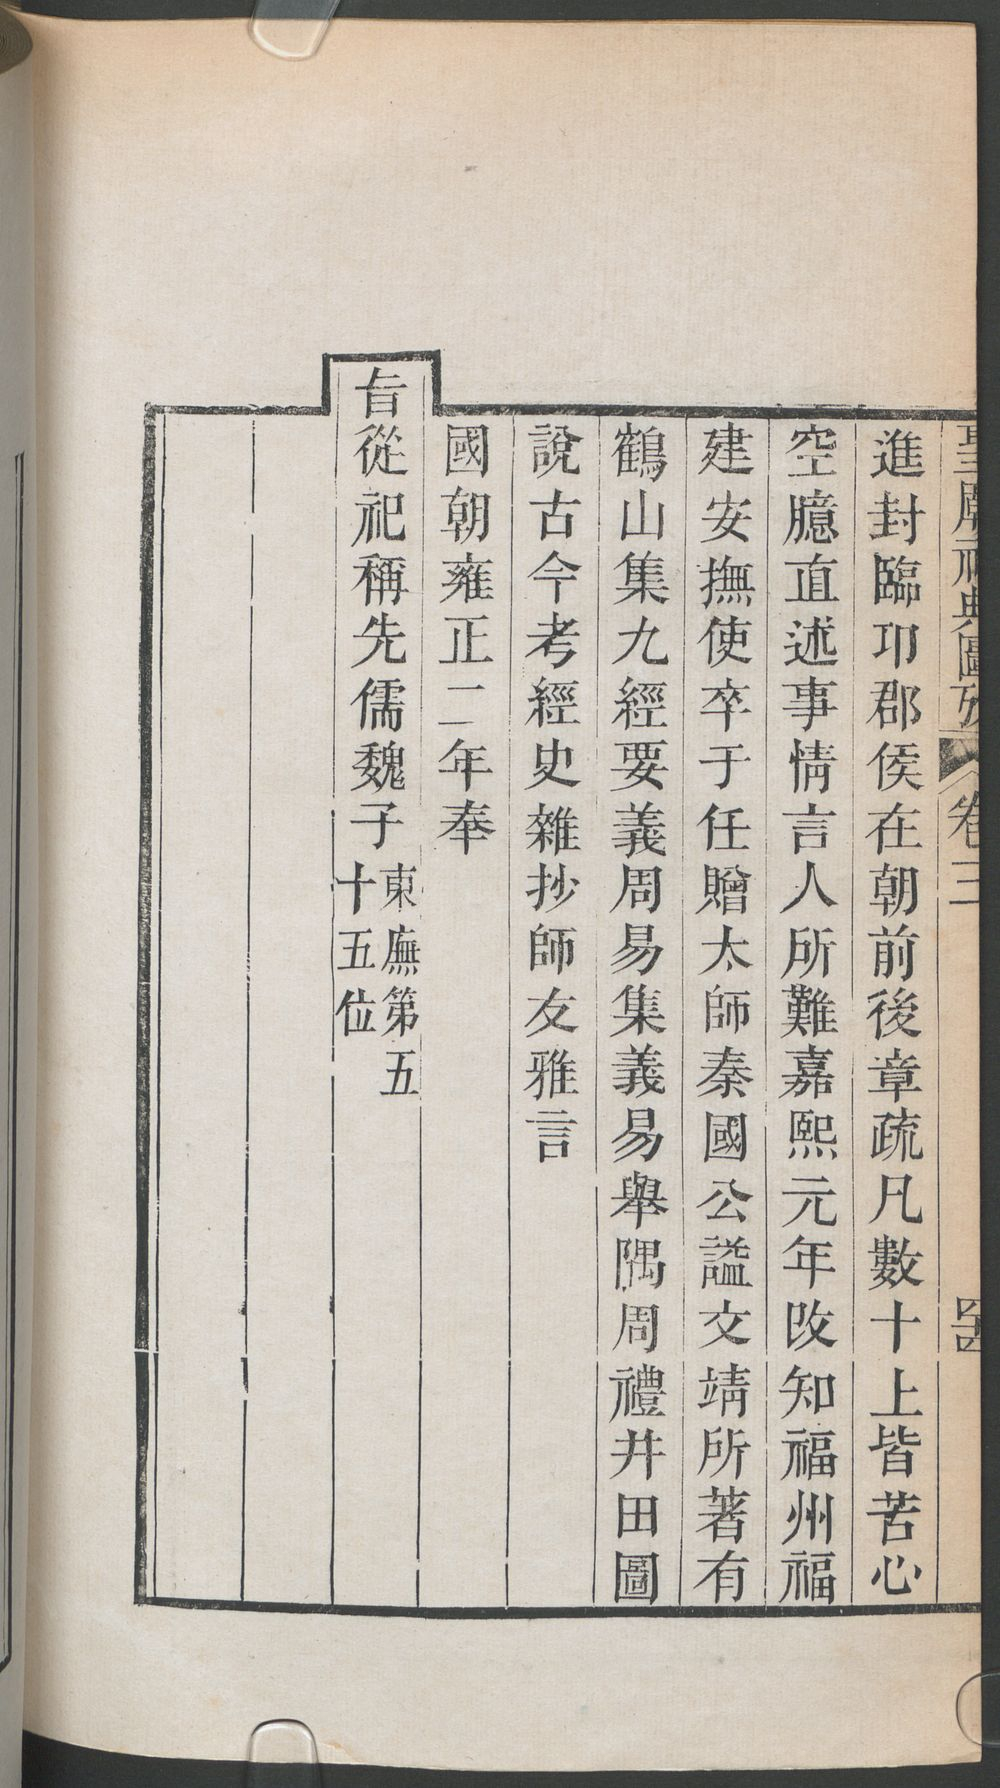 聖廟祀典圖攷 卷三
進封臨邛郡侯在朝前後章疏凡數十上皆苦心
空臆直述事情言人所難嘉熙元年改知福州福
建安撫使卒于任贈太師秦國公謚文靖所著有
鶴山集九經要義周易集義易舉隅周禮井田圖
說古今考經史雜抄師友雅言
國朝雍正二年奉
旨從祀稱先儒魏子東廡第五
十五位